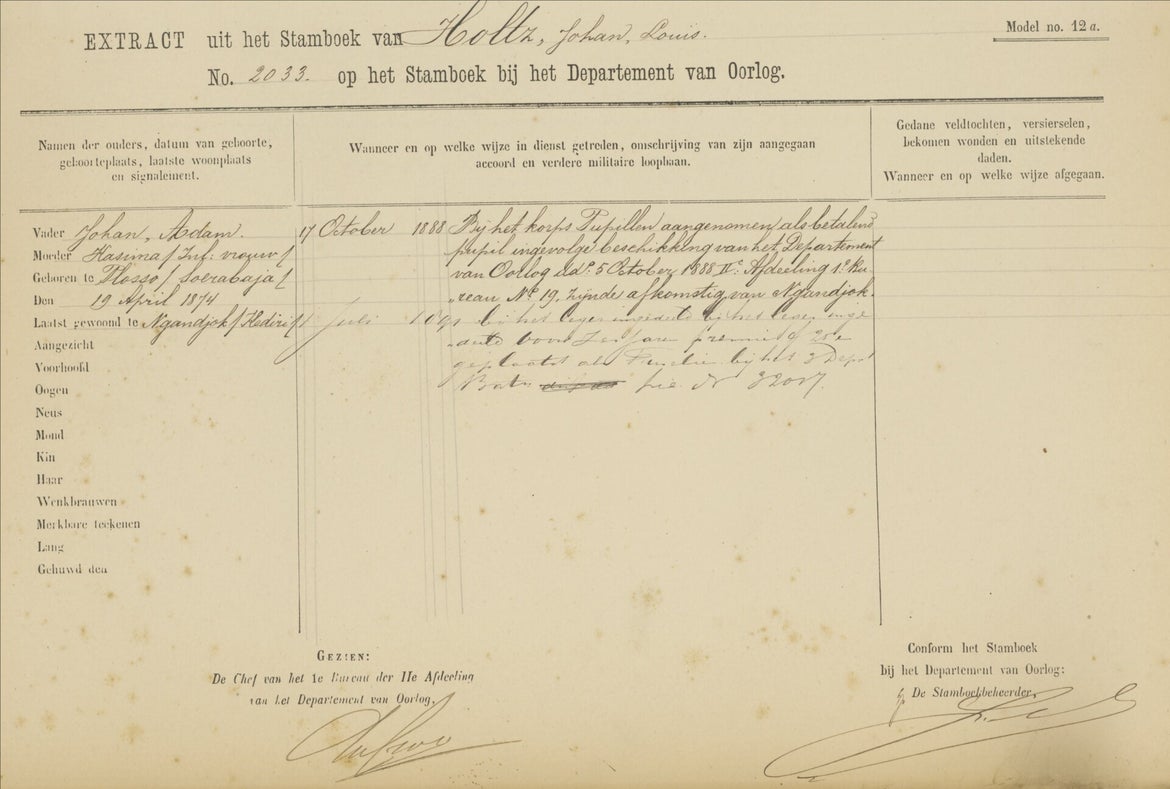 EXTRACT uit het Stamboek van Holtz, Johan, Louis.
Model no. 12a.
No. 2033. op het Stamboek bij het Departement van Oorlog.
Namen der ouders, datum van geboorte,
geboorteplaats, laatste woonplaats
en signalement.
Wanneer en op welke wijze in dienst getreden, omschrijving van zijn aangegaan
accoord en verdere militaire loopbaan.
Gedane veldtochten, versierselen,
bekomen wonden en uitstekende
daden.
Wanneer en op welke wijze afgegaan.
Vader Johan, Adam.
Moeder Hasima / Inl. vrouw /
Geboren te Plosso / Soerabaja /
Den 19 April 1874
Laatst gewoond te Ngandjok / Kediri /
Aangezicht
Voorhoofd
Oogen
Neus
Mond
Kin
Haar
Wenkbrauwen
Merkbare teekenen
Lang
Gehuwd den
17 October 1888 Bij het korps Pupillen aangenomen als betalend
pupil ingevolge beschikking van het Departement
van Oorlog dd. 5 October 1888 IIe Afdeeling 1e Bu-
reau No 19, zijnde afkomstig van Ngandjok.
1 Juli bij het leger
voor jaar premie
geplaatst als bij het 3 Dep
Bat No
GEZIEN:
De Chef van het 1e Bureau der IIe Afdeeling
van het Departement van Oorlog,
Conform het Stamboek
bij het Departement van Oorlog:
De Stamboekbeheerder,